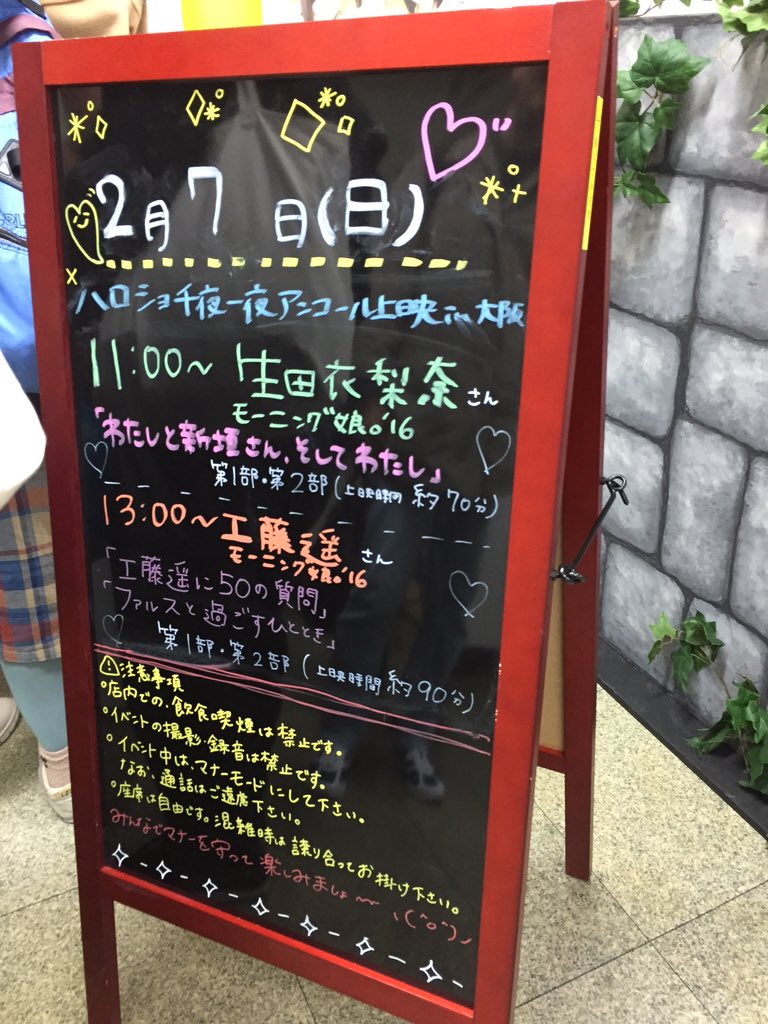 2月7日(日)
ハロショ千夜一夜アンコール上映 in 大阪
11:00〜 生田衣梨奈さん
モーニング娘。'16
「わたしと新垣さん、そしてわたし」
第1部・第2部(上映時間 約70分)
13:00〜工藤遥さん
モーニング娘。'16
「工藤遥に50の質問」
「ファルスと過ごすひととき」
第1部・第2部(上映時間 約90分)
⚠注意事項
○店内での、飲食喫煙は禁止です。
○イベントの撮影・録音は禁止です。
○イベント中は、マナーモードにして下さい。
なお、通話はご遠慮下さい。
○座席は自由です。混雑時は譲り合ってお掛け下さい。
みんなでマナーを守って楽しみましょ〜 ヽ(^o^)ノ